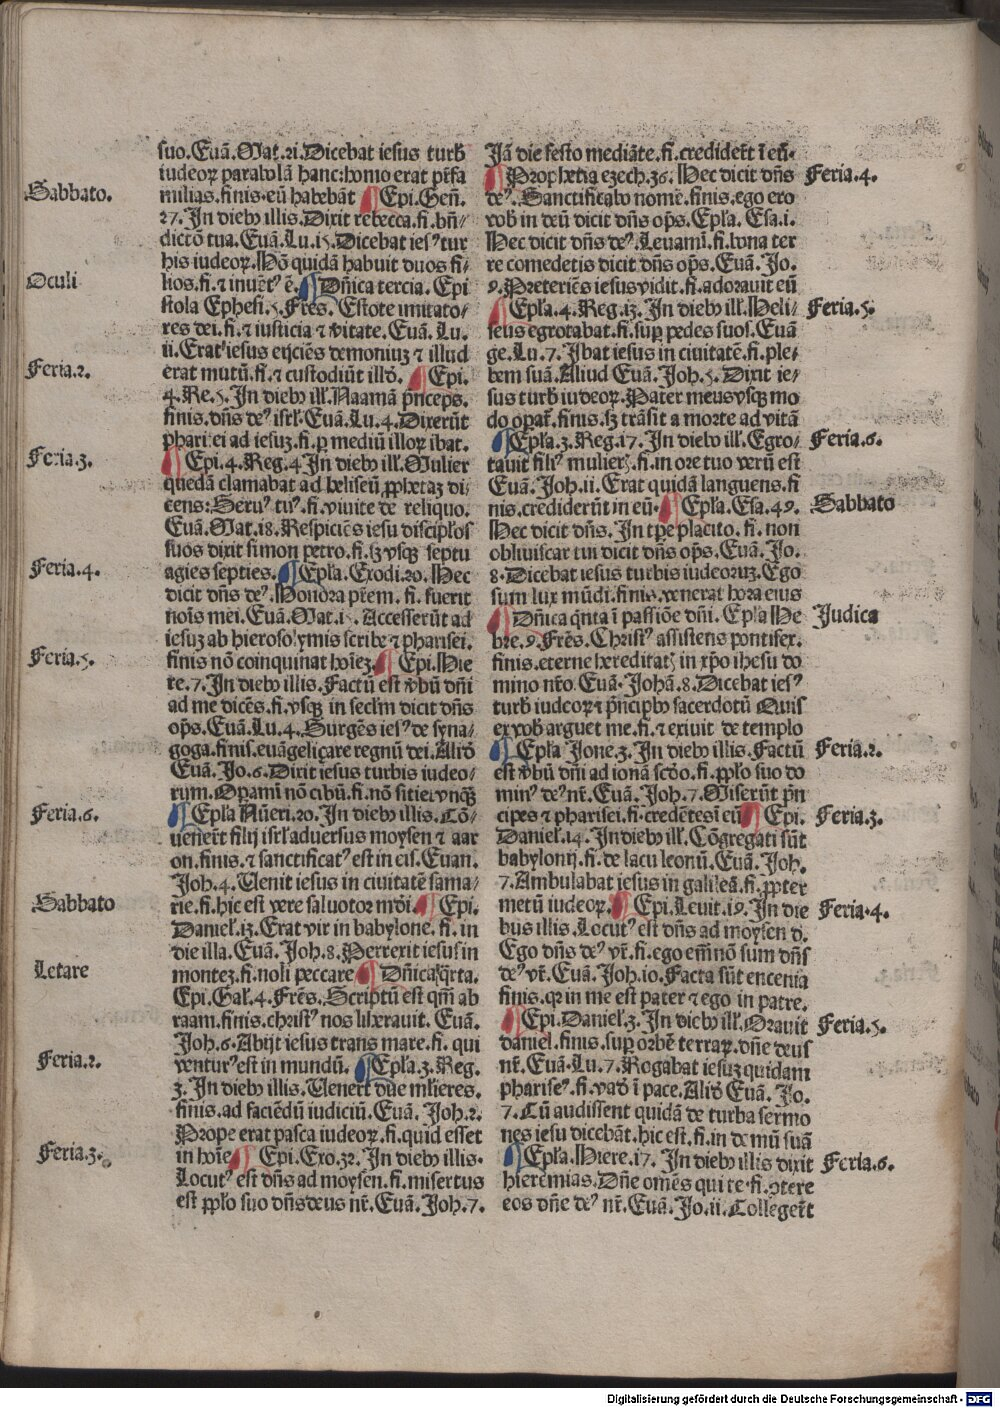 suo. Euā. Mat. 21. Dicebat iesus turb̄
iudeoꝝ parabolā hanc: homo erat pr̄fa
milias. finis. eū habebāt ¶ Epi. Geñ.
27. In dieb9 illis. Dixit rebecca. fi. bn̄-
dictō tua. Euā. Lu. 15. Dicebat iesꝰ tur
bis iudeoꝝ. Hō quidā habuit duos fi-
lios. fi. ⁊ inuētꝰ ē. ¶ Dn̄ica tercia. Epi
stola Ephesi. 5. Frēs. Estote imitato-
res dei. fi. ⁊ iusticia ⁊ v̄itate. Euā. Lu.
ii. Erat iesus eijciēs demoniuꝫ ⁊ illud
erat mutū. fi. ⁊ custodiūt illd̄. ¶ Epi.
4. Re. 5. In dieb9 ill̄. Naamā pn̄ceps.
finis. dn̄s deꝰ isrl̄. Euā. Lu. 4. Dixerūt
pharisei ad iesuꝫ. fi. ꝑ mediū illoꝝ ibat.
¶ Epi. 4. Reg. 4 In dieb9 ill̄. Mulier
quedā clamabat ad heliseū ꝓphetaꝫ di-
cens: Seruꝰ tuꝰ. fi. viuite de reliquo.
Euā. Mat. 18. Respiciēs iesu discipl̄os
suos dixit simon petro. fi. sꝫ vsqꝫ septu
agies septies. ¶ Epl̄a. Exodi. 20. Hec
dicit dn̄s deꝰ. Honora pr̄em. fi. fuerit
noīs mei. Euā. Mat. 15. Accesserūt ad
iesuꝫ ab hierosolymis scribe ⁊ pharisei.
finis nō coinquinat hoīeꝫ. ¶ Epi. Hie
re. 7. In dieb9 illis. Factū est v̄bū dn̄i
ad me dicēs. fi. vsqꝫ in secl̄m dicit dn̄s
op̄s. Euā. Lu. 4. Surgēs iesꝰ de syna-
goga. finis. euāgeliçare regnū dei. Aliđ
Euā. Jo. 6. Dixit iesus turbis iudeo-
rum. Opamī nō cibū. fi. nō sitiet vnqꝫ
¶ Epl̄a Nūeri. 20. In dieb9 illis. Cō-
uener̄t filij isrl̄ aduersus moysen ⁊ aar
on. finis. ⁊ sanctificatꝰ est in eis. Euan.
Joh. 4. Uenit iesus in ciuitatē sama-
rie. fi. hic est vere saluator mūdi. ¶ Epi.
Daniel. 13. Erat vir in babylone. fi. in
die illa. Euā. Joh. 8. Perrexit iesus in
monteꝫ. fi. noli peccare ¶ Dn̄ica q̄rta.
Epi. Gal̄. 4. Frēs. Scriptū est qm̄ ab
raam. finis. christꝰ nos liberauit. Euā.
Joh. 6. Abijt iesus trans mare. fi. qui
venturꝰ est in mundū. ¶ Epl̄a. 3. Reg.
3. In dieb9 illis. Uener̄t due ml̄ieres.
finis. ad faciēdū iudiciū. Euā. Joh. 2.
Prope erat pasca iudeoꝝ. fi. quid esset
in hoīe ¶ Epi. Exo. 32. In dieb9 illis.
Locutꝰ est dn̄s ad moysen. fi. misertus
est ꝓpl̄o suo dn̄s deus nr̄. Euā. Joh. 7.
Sabbato.
Oculi
Feria. 2.
Feria. 3.
Feria. 4.
Feria. 5.
Feria. 6.
Sabbato
Letare
Feria. 2.
Feria. 3.
Jā die festo mediāte. fi. credider̄t ī eū.
¶ Prophetia ezech. 36. Hec dicit dn̄s
deꝰ. Sanctificabo nomē. finis. ego ero
vob̄ in deū dicit dn̄s op̄s. Epl̄a. Esa. i.
Hec dicit dn̄s deꝰ. Leuamī. fi. bona ter
re comedetis dicit dn̄s op̄s. Euā. Jo.
9. Preteriēs iesus vidit. fi. adorauit eū
¶ Epl̄a. 4. Reg. 13. In dieb9 ill̄. Heli-
seus egrotabat. fi. suꝑ pedes suos. Euā
ge. Lu. 7. Ibat iesus in ciuitatē. fi. ple-
bem suā. Aliud Euā. Joh. 5. Dixit ie-
sus turb̄ iudeoꝝ. Pater meus vsqꝫ mo
do opat̄. finis. sꝫ trāsit a morte ad vitā
¶ Epl̄a. 3. Reg. 17. In dieb9 ill̄. Egro-
tauit filiꝰ mulieris. fi. in ore tuo verū est
Euā. Joh. ii. Erat quidā languens. fi
nis. crediderūt in eū. ¶ Epl̄a. Esa. 49.
Hec dicit dn̄s. In tp̄e placito. fi. non
obliuiscar tui dicit dn̄s op̄s. Euā. Jo.
8. Dicebat iesus turbis iudeoruꝫ. Ego
sum lux mūdi. finis. venerat hora eius
¶ Dn̄ica qn̄ta ī passiōe dn̄i. Epl̄a He
bre. 9. Frēs. Christꝰ assistens pontifex.
finis. eterne hereditatis in xp̄o ihesu do
mino nr̄o. Euā. Johā. 8. Dicebat iesꝰ
turb̄ iudeoꝝ ⁊ pn̄cipib9 sacerdotū Quis
ex vob̄ arguet me. fi. ⁊ exiuit de templo
¶ Epl̄a Jone. 3. In dieb9 illis. Factū
est v̄bū dn̄i ad ionā scd̄o. fi. ꝓpl̄o suo do
minꝰ deꝰ nr̄. Euā. Joh. 7. Miserūt pn̄
cipes ⁊ pharisei. fi. credētes ī eū ¶ Epi.
Daniel. 14. In dieb9 ill̄. Cōgregati sūt
babylonij. fi. de lacu leonū. Euā. Joh.
7. Ambulabat iesus in galileā. fi. ꝓpter
metū iudeoꝝ. ¶ Epi. Leuit. 19. In die
bus illis. Locutꝰ est dn̄s ad moysen đ.
Ego dn̄s deꝰ vr̄. fi. ego em̄ nō sum dn̄s
deꝰ vr̄. Euā. Joh. 10. Facta sūt encenia
finis. qꝛ in me est pater ⁊ ego in patre.
¶ Epi. Daniel. 3. In dieb9 ill̄. Orauit
daniel. finis. suꝑ orbē terraꝝ. dn̄e deus
nr̄. Euā. Lu. 7. Rogabat iesuꝫ quidam
phariseꝰ. fi. vade ī pace. Aliđ Euā. Jo.
7. Cū audissent quidā de turba sermo
nes iesu dicebāt. hic est. fi. in domū suā
¶ Epl̄a. Hiere. 17. In dieb9 illis dixit
hieremias. Dn̄e omēs qui te. fi. ꝯtere
eos dn̄e deꝰ nr̄. Euā. Jo. ii. Colleger̄t
Feria. 4.
Feria. 5.
Feria. 6.
Sabbato
Judica
Feria. 2.
Feria. 3.
Feria. 4.
Feria. 5.
Feria. 6.
Digitalisierung gefördert durch die Deutsche Forschungsgemeinschaft - DFG